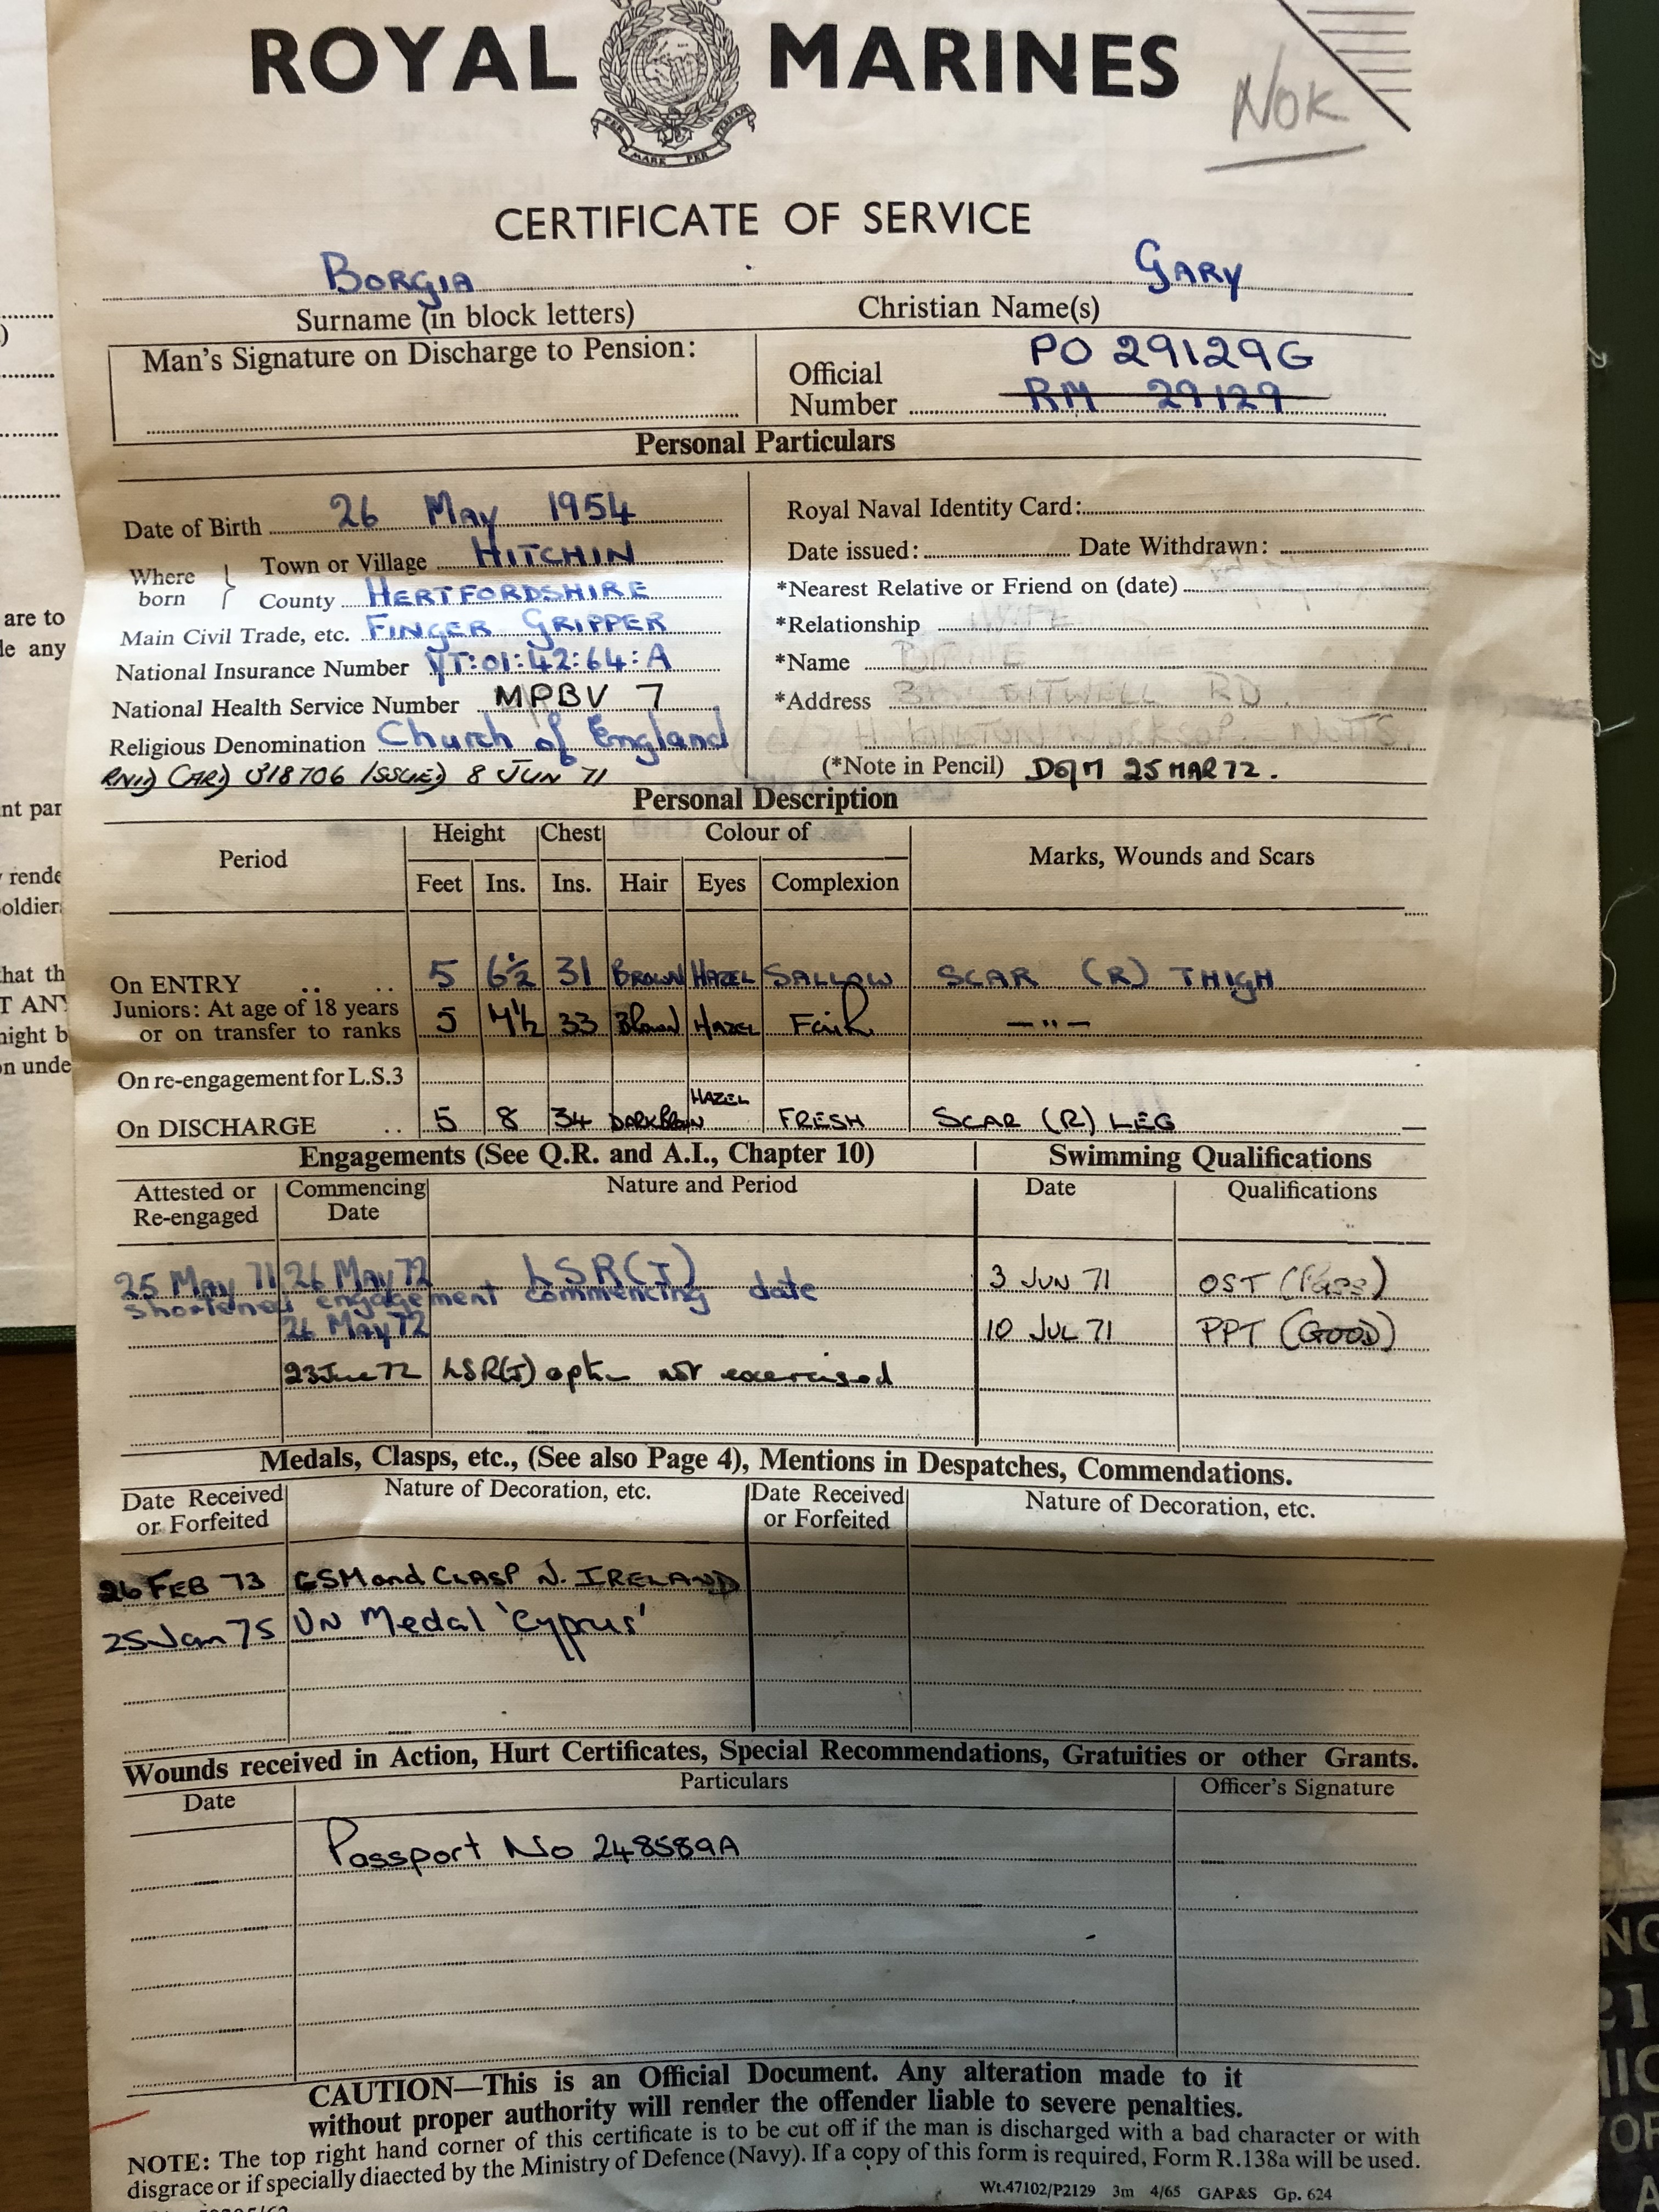 ROYAL MARINES
PER MARE PER TERRAM
NOK
CERTIFICATE OF SERVICE
BORGIA GARY
Surname (in block letters) Christian Name(s)
Man's Signature on Discharge to Pension:
Official Number PO 29129G
RM 29129
Personal Particulars
Date of Birth 26 May 1954
Where born } Town or Village HITCHIN
County HERTFORDSHIRE
Main Civil Trade, etc. FINGER GRIPPER
National Insurance Number YT:01:42:64:A
National Health Service Number MPBV 7
Religious Denomination Church of England
RNID CARD 318706 ISSUED 8 JUN 71
Royal Naval Identity Card:
Date issued: Date Withdrawn:
*Nearest Relative or Friend on (date)
*Relationship WIFE
*Name
*Address RD
WORKSOP NOTTS.
(*Note in Pencil) DofM 25 MAR 72.
Personal Description
Period Height Chest Colour of Marks, Wounds and Scars
Feet Ins. Ins. Hair Eyes Complexion
On ENTRY .. .. 5 6½ 31 BROWN HAZEL SALLOW SCAR (R) THIGH
Juniors: At age of 18 years
or on transfer to ranks 5 7½ 33 Brown HAZEL Fair — " —
On re-engagement for L.S.3
On DISCHARGE .. 5 8 34 DARK BROWN HAZEL FRESH SCAR (R) LEG
Engagements (See Q.R. and A.I., Chapter 10) Swimming Qualifications
Attested or Re-engaged Commencing Date Nature and Period Date Qualifications
25 May 71 26 May 72 LSR(J) 3 JUN 71 OST (Pass)
shortened engagement commencing date
26 May 72 10 JUL 71 PPT (GOOD)
23 June 72 LSR(J) option not exercised
Medals, Clasps, etc., (See also Page 4), Mentions in Despatches, Commendations.
Date Received or Forfeited Nature of Decoration, etc. Date Received or Forfeited Nature of Decoration, etc.
26 FEB 73 GSM and CLASP N. IRELAND
25 Jan 75 UN Medal 'Cyprus'
Wounds received in Action, Hurt Certificates, Special Recommendations, Gratuities or other Grants.
Date Particulars Officer's Signature
Passport No 248589A
CAUTION—This is an Official Document. Any alteration made to it
without proper authority will render the offender liable to severe penalties.
NOTE: The top right hand corner of this certificate is to be cut off if the man is discharged with a bad character or with
disgrace or if specially diaected by the Ministry of Defence (Navy). If a copy of this form is required, Form R.138a will be used.
Wt.47102/P2129 3m 4/65 GAP&S Gp. 624